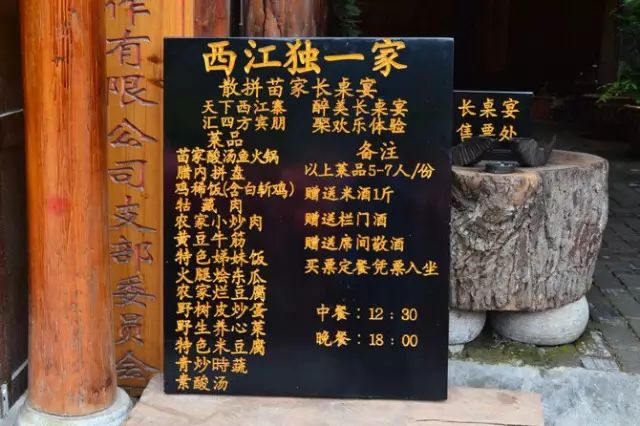 西江独一家
散拼苗家长桌宴
天下西江寨
汇四方宾朋
醉美长桌宴
聚欢乐体验
菜品
苗家酸汤鱼火锅
腊内拼盘
鸡稀饭(含白斩鸡)
牯藏肉
农家小炒肉
黄豆牛筋
特色娣妹饭
火腿烩东瓜
农家烂豆腐
野树皮炒蛋
野生养心菜
特色米豆腐
青炒時蔬
素酸汤
备注
以上菜品5-7人/份
赠送米酒1斤
赠送栏门酒
赠送席间敬酒
买票定餐凭票入坐
中餐：12:30
晚餐：18:00
长桌宴
售票处
作有限公司支部委员会